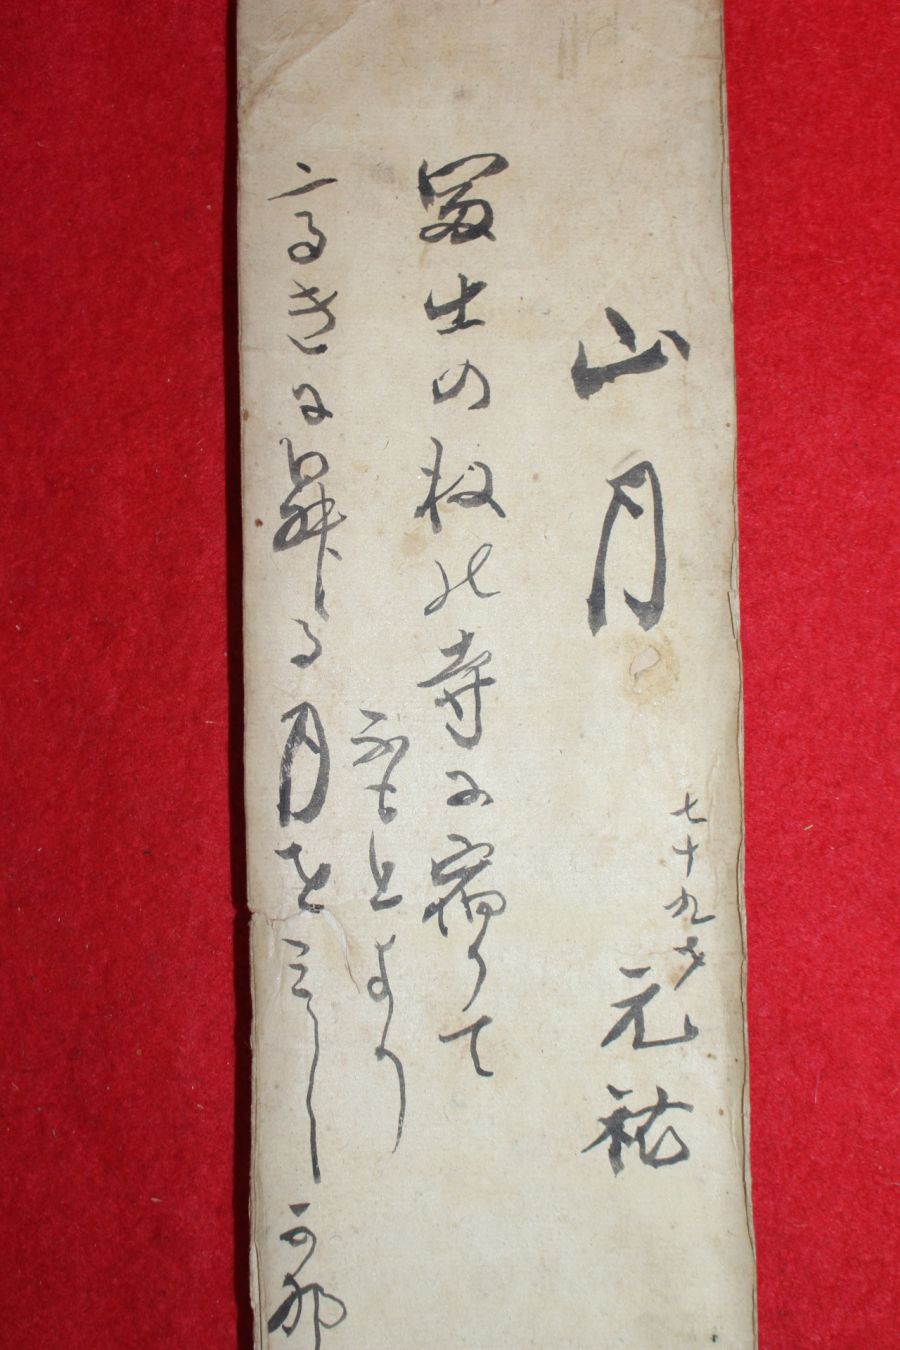 山月
七十九才 元祐
冨士の根の寺に宿りて
ふもとより
高きに昇る月をミし可那